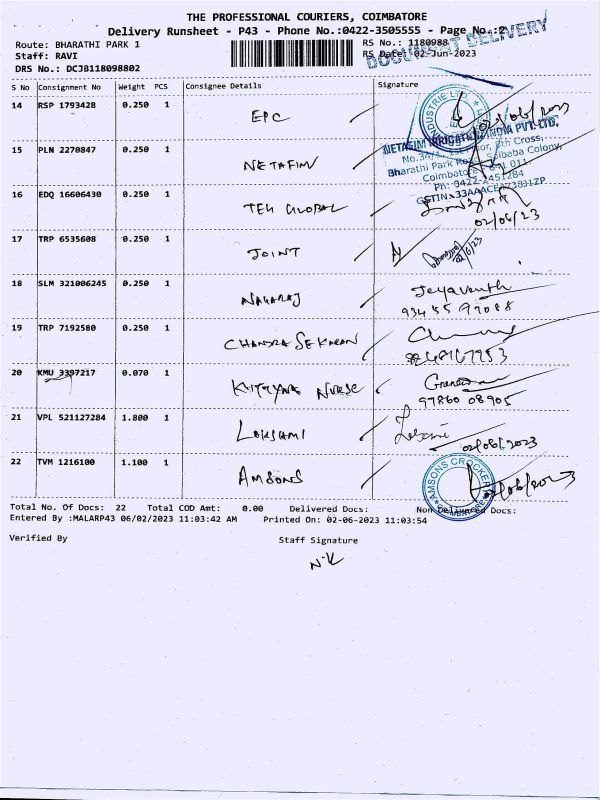 THE PROFESSIONAL COURIERS, COIMBATORE
Delivery Runsheet - P43 - Phone No.:0422-3505555 - Page No.:2
DOCUMENT DELIVERY
Route: BHARATHI PARK 1
RS No.: 1180988
Staff: RAVI
RS Date: 02-Jun-2023
DRS No.: DCJB118098802
S No Consignment No Weight PCS Consignee Details Signature
14 RSP 1793428 0.250 1 EPC 02/06/2023
NETAFIM IRRIGATION INDIA PVT. LTD.
15 PLN 2270847 0.250 1 NETAFIM
Bharathi Park Road, Saibaba Colony,
Coimbatore - 641 011.
Ph: 0422-2451284
16 EDQ 16606430 0.250 1 TEH GLOBAL
02/06/23
17 TRP 6535608 0.250 1 JOINT
18 SLM 321006245 0.250 1 NAGARAJ Jeyavanth
93455 97088
19 TRP 7192580 0.250 1 CHANDRA SEKARAN
20 KMU 3397217 0.070 1 NURSE
97860 08905
21 VPL 521127284 1.800 1 LAKSHMI
02/06/2023
22 TVM 1216100 1.100 1 AMSONS 02/06/2023
AMSONS CROCKERY
COIMBATORE
Total No. Of Docs: 22 Total COD Amt: 0.00 Delivered Docs: Non Delivered Docs:
Entered By :MALARP43 06/02/2023 11:03:42 AM Printed On: 02-06-2023 11:03:54
Verified By Staff Signature